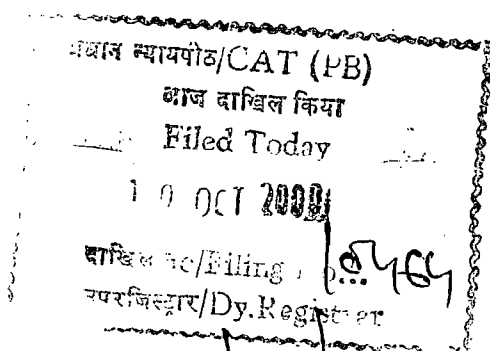 प्रधान न्यायपीठ/CAT (PB)
आज दाखिल किया
Filed Today
10 OCT
दाखिल /Filing No...
उपरजिस्ट्रार/Dy.Registrar